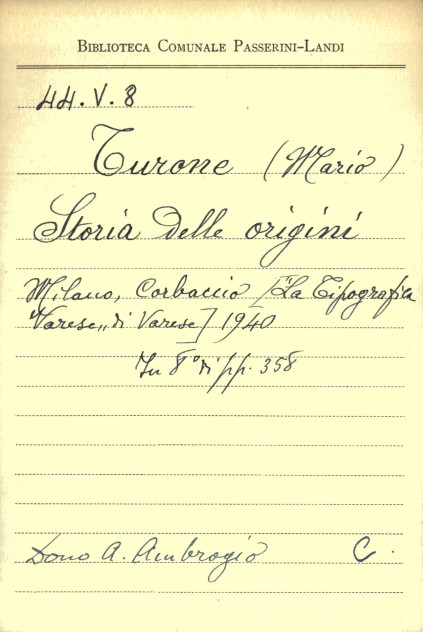 BIBLIOTECA COMUNALE PASSERINI-LANDI
44.V.8
Turone (Mario)
Storia delle origini
Milano, Corbaccio ["La Tipografica
Varese„ di Varese] 1940
In 8° di pp. 358
Dono A. Ambrogio C.